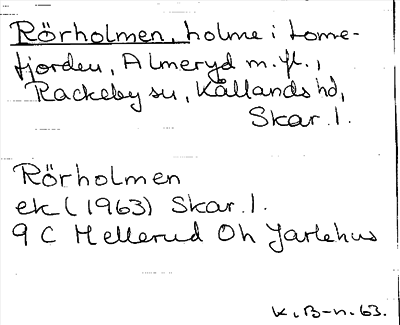 Rörholmen, holme i Lome-
fjorden, Almeryd m.fl.,
Rackeby sn, Kållands hd,
Skar. l.
Rörholmen
ek (1963) Skar. l.
9 C Mellerud Oh Jarlehus
K. B-n. 63.